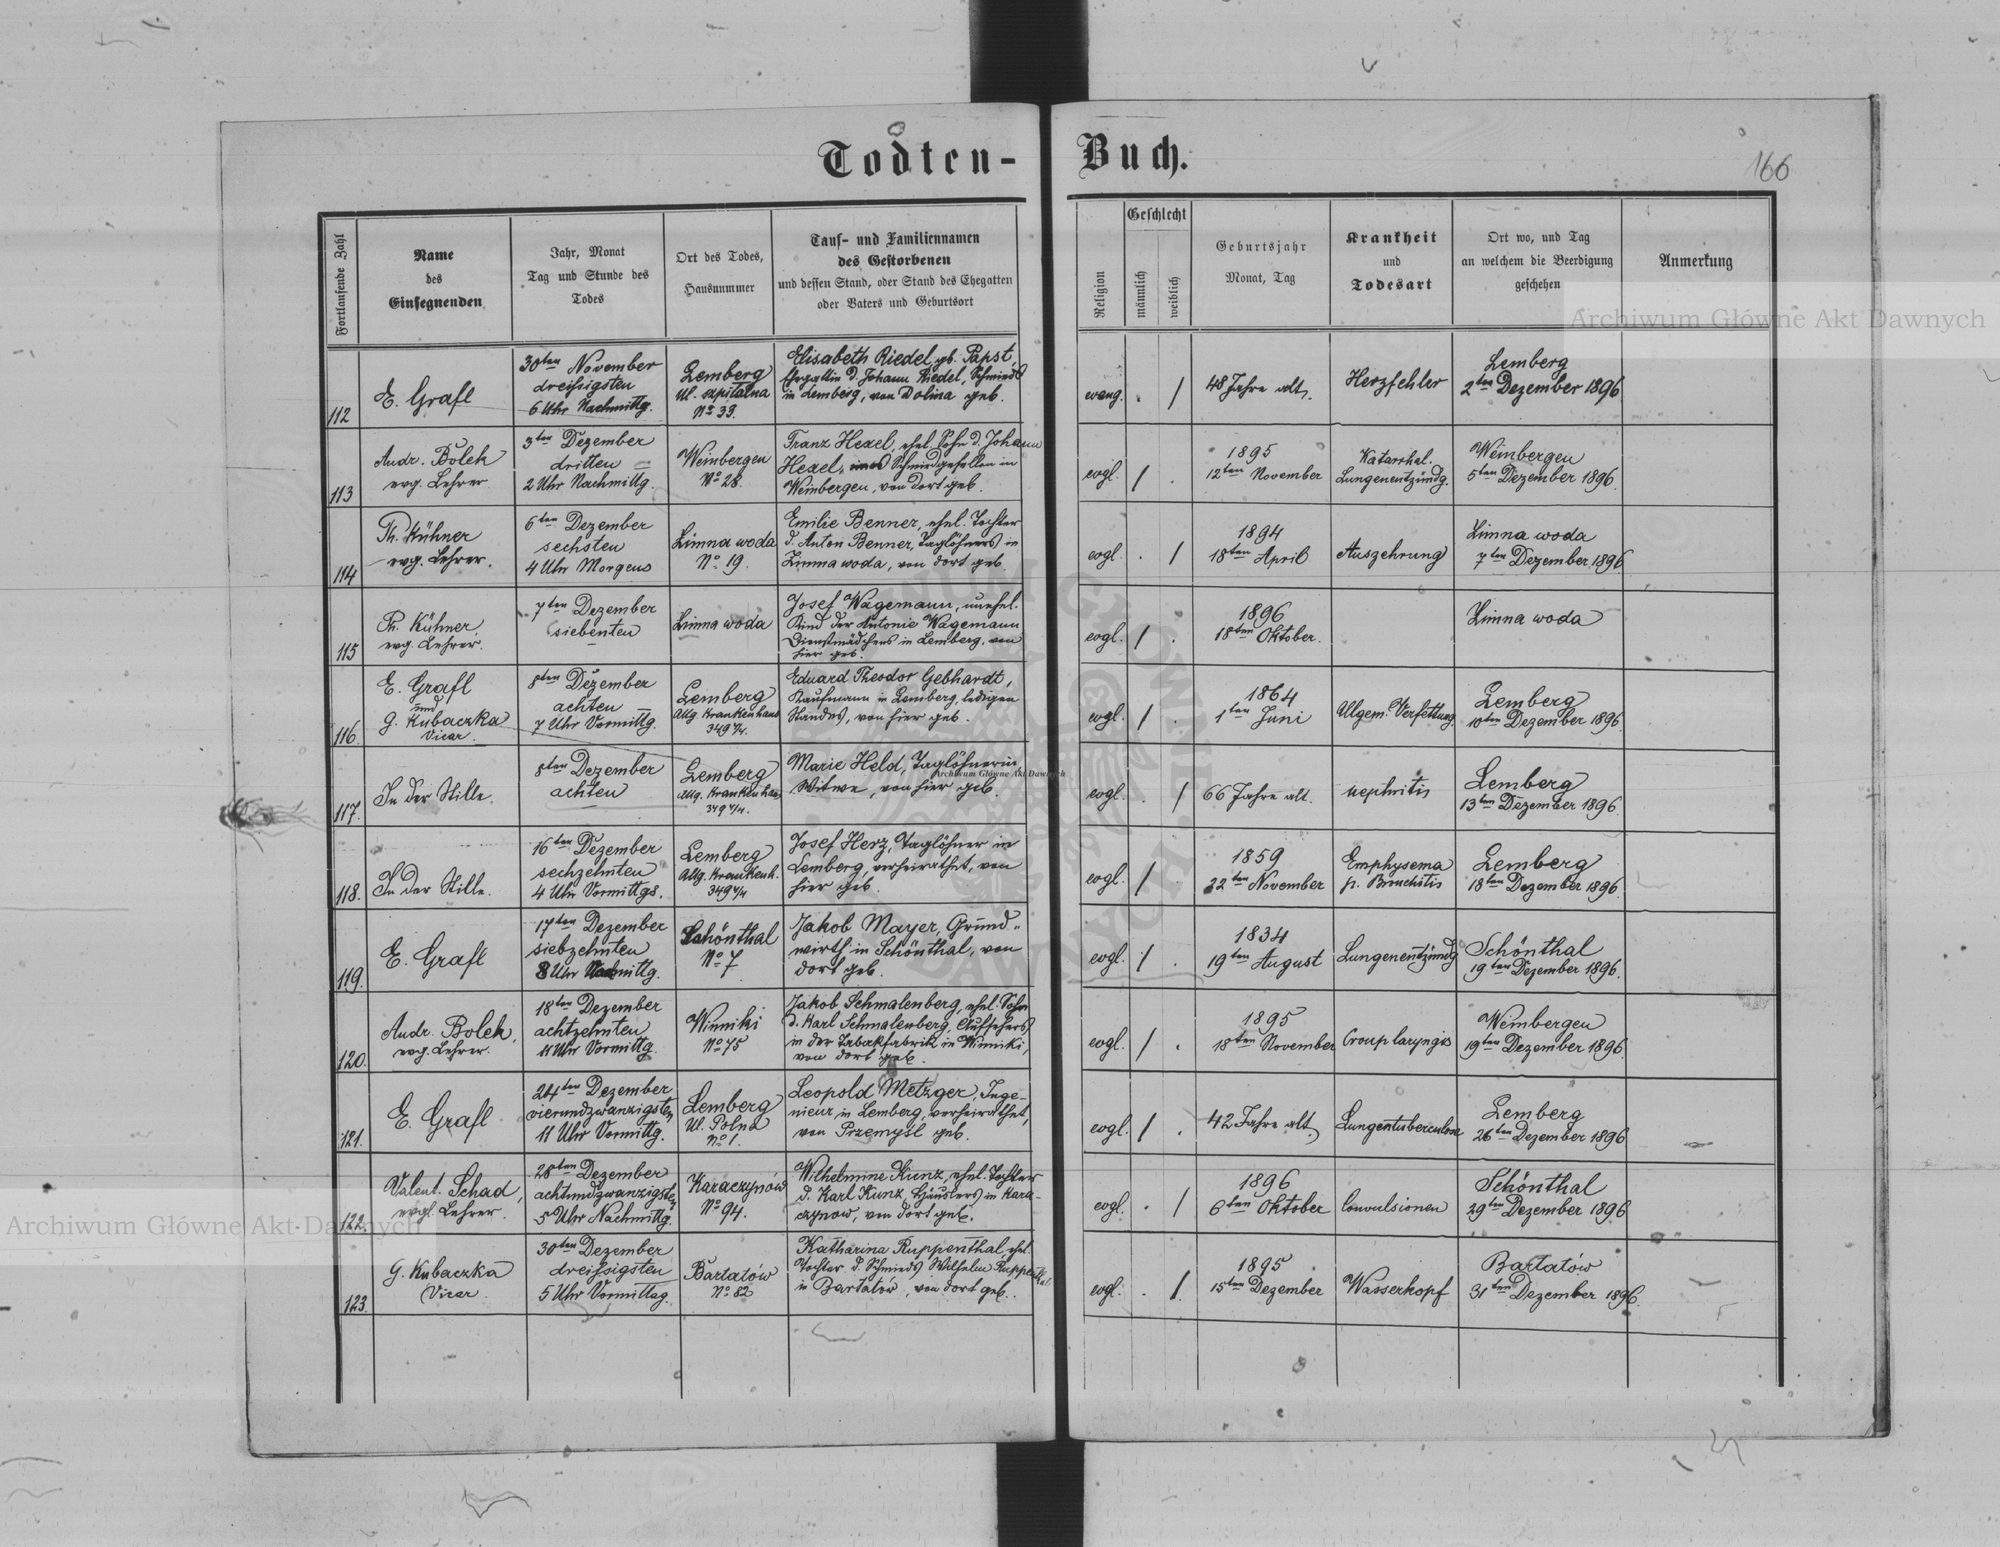 Todten- Buch.
166
Fortlaufende Zahl
Name
des
Einsegnenden
Jahr, Monat
Tag und Stunde des
Todes
Ort des Todes,
Hausnummer
Tauf- und Familiennamen
des Gestorbenen
und dessen Stand, oder Stand des Ehegatten
oder Vaters und Geburtsort
Religion
Geschlecht
männlich
weiblich
Geburtsjahr
Monat, Tag
Krankheit
und
Todesart
Ort wo, und Tag
an welchem die Beerdigung
geschehen
Anmerkung
Archiwum Główne Akt Dawnych
112
E. Grafl
30ten November
dreißigsten
6 Uhr Nachmittg.
Lemberg
Ul. szpitalna
No 39.
Elisabeth Riedel, gb. Papst,
Ehegattin d. Johann Riedel, Schmieds
in Lemberg, von Dolina geb.
evang.
. /
48 Jahre alt.
Herzfehler
Lemberg
2ten Dezember 1896
113
Andr. Bolek
evg. Lehrer
3ten Dezember
dritten
2 Uhr Nachmittg.
Weinbergen
No 28.
Franz Hexel, ehel. Sohn d. Johann
Hexel, Schmiedgesellen in
Weinbergen, von dort geb.
evgl.
/ .
1895
12ten November
Katarrhal.
Lungenentzündg.
Weinbergen
5ten Dezember 1896
114
Ph. Kühner
evg. Lehrer.
6ten Dezember
sechsten
4 Uhr Morgens
Zimna woda
No 19.
Emilie Benner, ehel. Tochter
d. Anton Benner, Taglöhners in
Zimna woda, von dort geb.
evgl.
. /
1894
18ten April
Auszehrung
Zimna woda
7ten Dezember 1896
115
Ph. Kühner
evg. Lehrer.
7ten Dezember
siebenten
Zimna woda
Josef Wagemann, unehel.
Kind der Antonie Wagemann
Dienstmädchens in Lemberg, von
hier geb.
evgl.
/ .
1896
18ten Oktober.
Zimna woda
116.
E. Grafl
und
G. Kubaczka
Vicar.
8ten Dezember
achten
7 Uhr Vormittg.
Lemberg
Allg. Krankenhaus
349 4/4.
Eduard Theodor Gebhardt,
Kaufmann in Lemberg, ledigen
Standes, von hier geb.
evgl.
/ .
1864
1ten Juni
Allgem. Verfettung
Lemberg
10ten Dezember 1896
117.
In der Stille.
8ten Dezember
achten
Lemberg
Allg. Krankenhaus
349 4/4.
Marie Held, Taglöhnerin,
Witwe, von hier geb.
Archiwum Główne Akt Dawnych
evgl.
. /
66 Jahre alt.
nephritis
Lemberg
13ten Dezember 1896
118.
In der Stille.
16ten Dezember
sechzehnten
4 Uhr Vormittgs.
Lemberg
Allg. Krankenh.
349 4/4
Josef Herz, Taglöhner in
Lemberg, verheirathet, von
hier geb.
evgl.
/ .
1859
22ten November
Emphysema
p. Bronchitis
Lemberg
18ten Dezember 1896
119.
E. Grafl
17ten Dezember
siebzehnten
8 Uhr Nachmittg.
Schönthal
No 7
Jakob Mayer, Grund-
wirth in Schönthal, von
dort geb.
evgl.
/ .
1834
19ten August
Lungenentzündg
Schönthal
19ten Dezember 1896.
120.
Andr. Bolek,
evg. Lehrer.
18ten Dezember
achtzehnten
11 Uhr Vormittg.
Winniki
No 75
Jakob Schmalenberg, ehel. Sohn
d. Karl Schmalenberg, Aufsehers
in der Tabakfabrik in Winniki,
von dort geb.
evgl.
/ .
1895
18ten November
Croup laryngis
Weinbergen
19ten Dezember 1896
121.
E. Grafl
24ten Dezember
vierundzwanzigsten
11 Uhr Vormittg.
Lemberg
Ul. Polna
No 1.
Leopold Metzger, Inge-
nieur, in Lemberg, verheirathet,
von Przemyśl geb.
evgl.
/ .
42 Jahre alt
Lungentuberculose
Lemberg
26ten Dezember 1896
122.
Valent. Schad,
evgl. Lehrer.
28ten Dezember
achtundzwanzigsten
5 Uhr Nachmittg.
Karaczynów
No 94.
Wilhelmine Kunz, ehel. Tochter
d. Karl Kunz, Häuslers in Kara-
czynow, von dort geb.
evgl.
. /
1896
6ten Oktober
Convulsionen
Schönthal
29ten Dezember 1896
Archiwum Główne Akt Dawnych
123.
G. Kubaczka
Vicar
30ten Dezember
dreißigsten
5 Uhr Vormittag.
Bartatów
No 82
Katharina Ruppenthal, ehel.
Tochter d. Schmieds Wilhelm Ruppenthal
in Bartatów, von dort geb.
evgl.
. /
1895
15ten Dezember
Wasserkopf
Bartatów
31ten Dezember 1896.